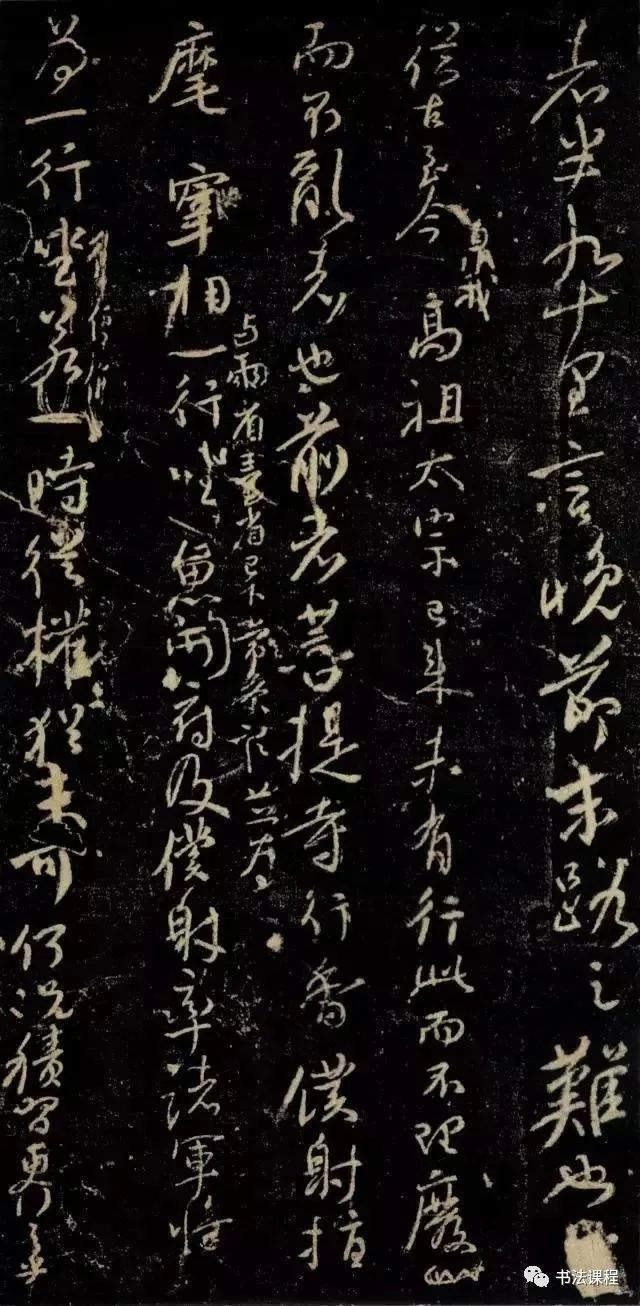 者半九十里言晚節末路之難也
從古至今臮我高祖太宗已來未有行此而不理廢
而不亂者也前者菩提寺行香僕射指
麾宰相与兩省臺省已下常參官並為一行坐魚開府及僕射率諸軍將
為一行坐若一時從權猶未可何況積習更行
书法课程